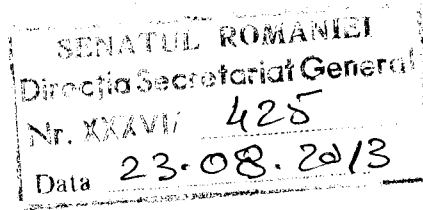 SENATUL ROMANIEI
Direcția Secretariat General
Nr. XXXVI/ 425
Data 23.08.2013